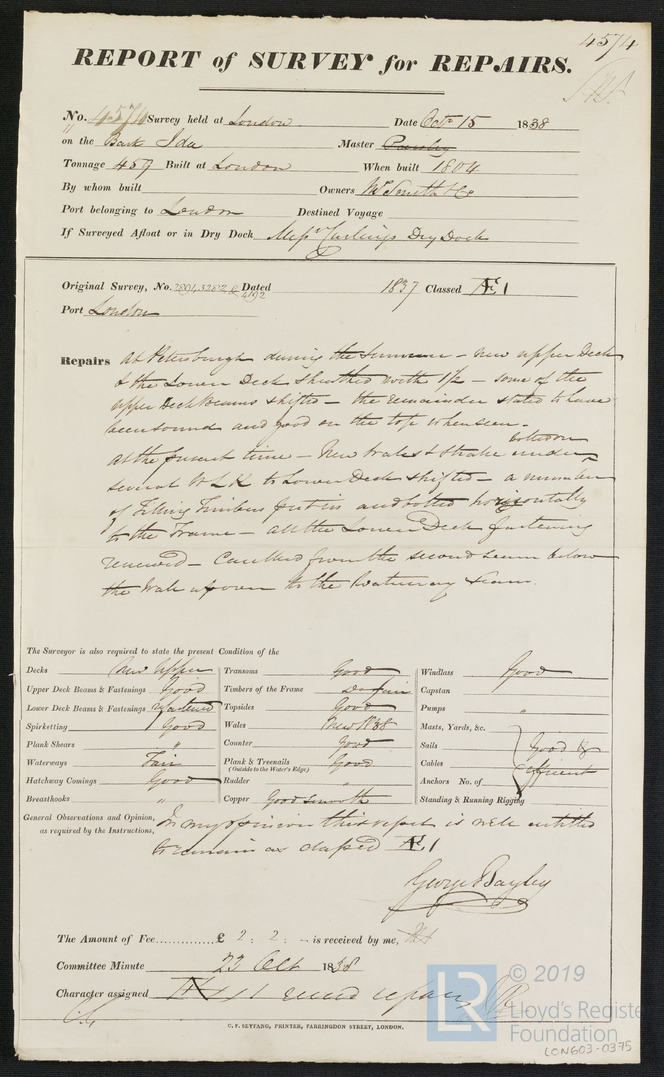 4574
REPORT of SURVEY for REPAIRS.
No. 4574 Survey held at London Date Octr 15 1838
on the Bark Ida Master
Tonnage 459 Built at London When built 1804
By whom built Owners Mr Smith & Co
Port belonging to London Destined Voyage
If Surveyed Afloat or in Dry Dock Messrs Curlings Dry Dock
Original Survey, No. Dated 1837 Classed Æ 1
4192
Port London
Repairs at Petersburgh during the Summer – new upper Deck
& the Lower Deck sheathed with 1½ – some of the
upper Deck Beams shifted – the remainder stated to have
been sound and good on the tops when seen.
at the present time – New Wales & Strake under
bolted on
several to Lower Deck shifted – a number
of Filling Timbers put in and bolted horizontally
to the Frame – all the Lower Deck fastening
renewed – Caulked from the second seam below
the Wale upon to the Waterway seam.
The Surveyor is also required to state the present Condition of the
Decks New Upper Transoms Good Windlass Good
Upper Deck Beams & Fastenings Good Timbers of the Frame Do fair Capstan
Lower Deck Beams & Fastenings refastened Topsides Good Pumps "
Spirketting Good Wales New 1838 Masts, Yards, &c.
Plank Shears " Counter Good Sails Good &
Waterways Fair Plank & Treenails Good Cables efficient
(Outside to the Water's Edge)
Hatchway Comings Good Rudder " Anchors No. of
Breasthooks " Copper Good smooth Standing & Running Rigging
General Observations and Opinion, In my opinion this report is well entitled
as required by the Instructions, to remain as classed Æ 1
George Bayley
The Amount of Fee £ 2 : 2 : – is received by me,
Committee Minute 23 Oct 1838
Character assigned Æ 1 repairs
C. F. SEYFANG, PRINTER, FARRINGDON STREET, LONDON.
LR © 2019
Lloyd's Registe
Foundation
LON603-0375